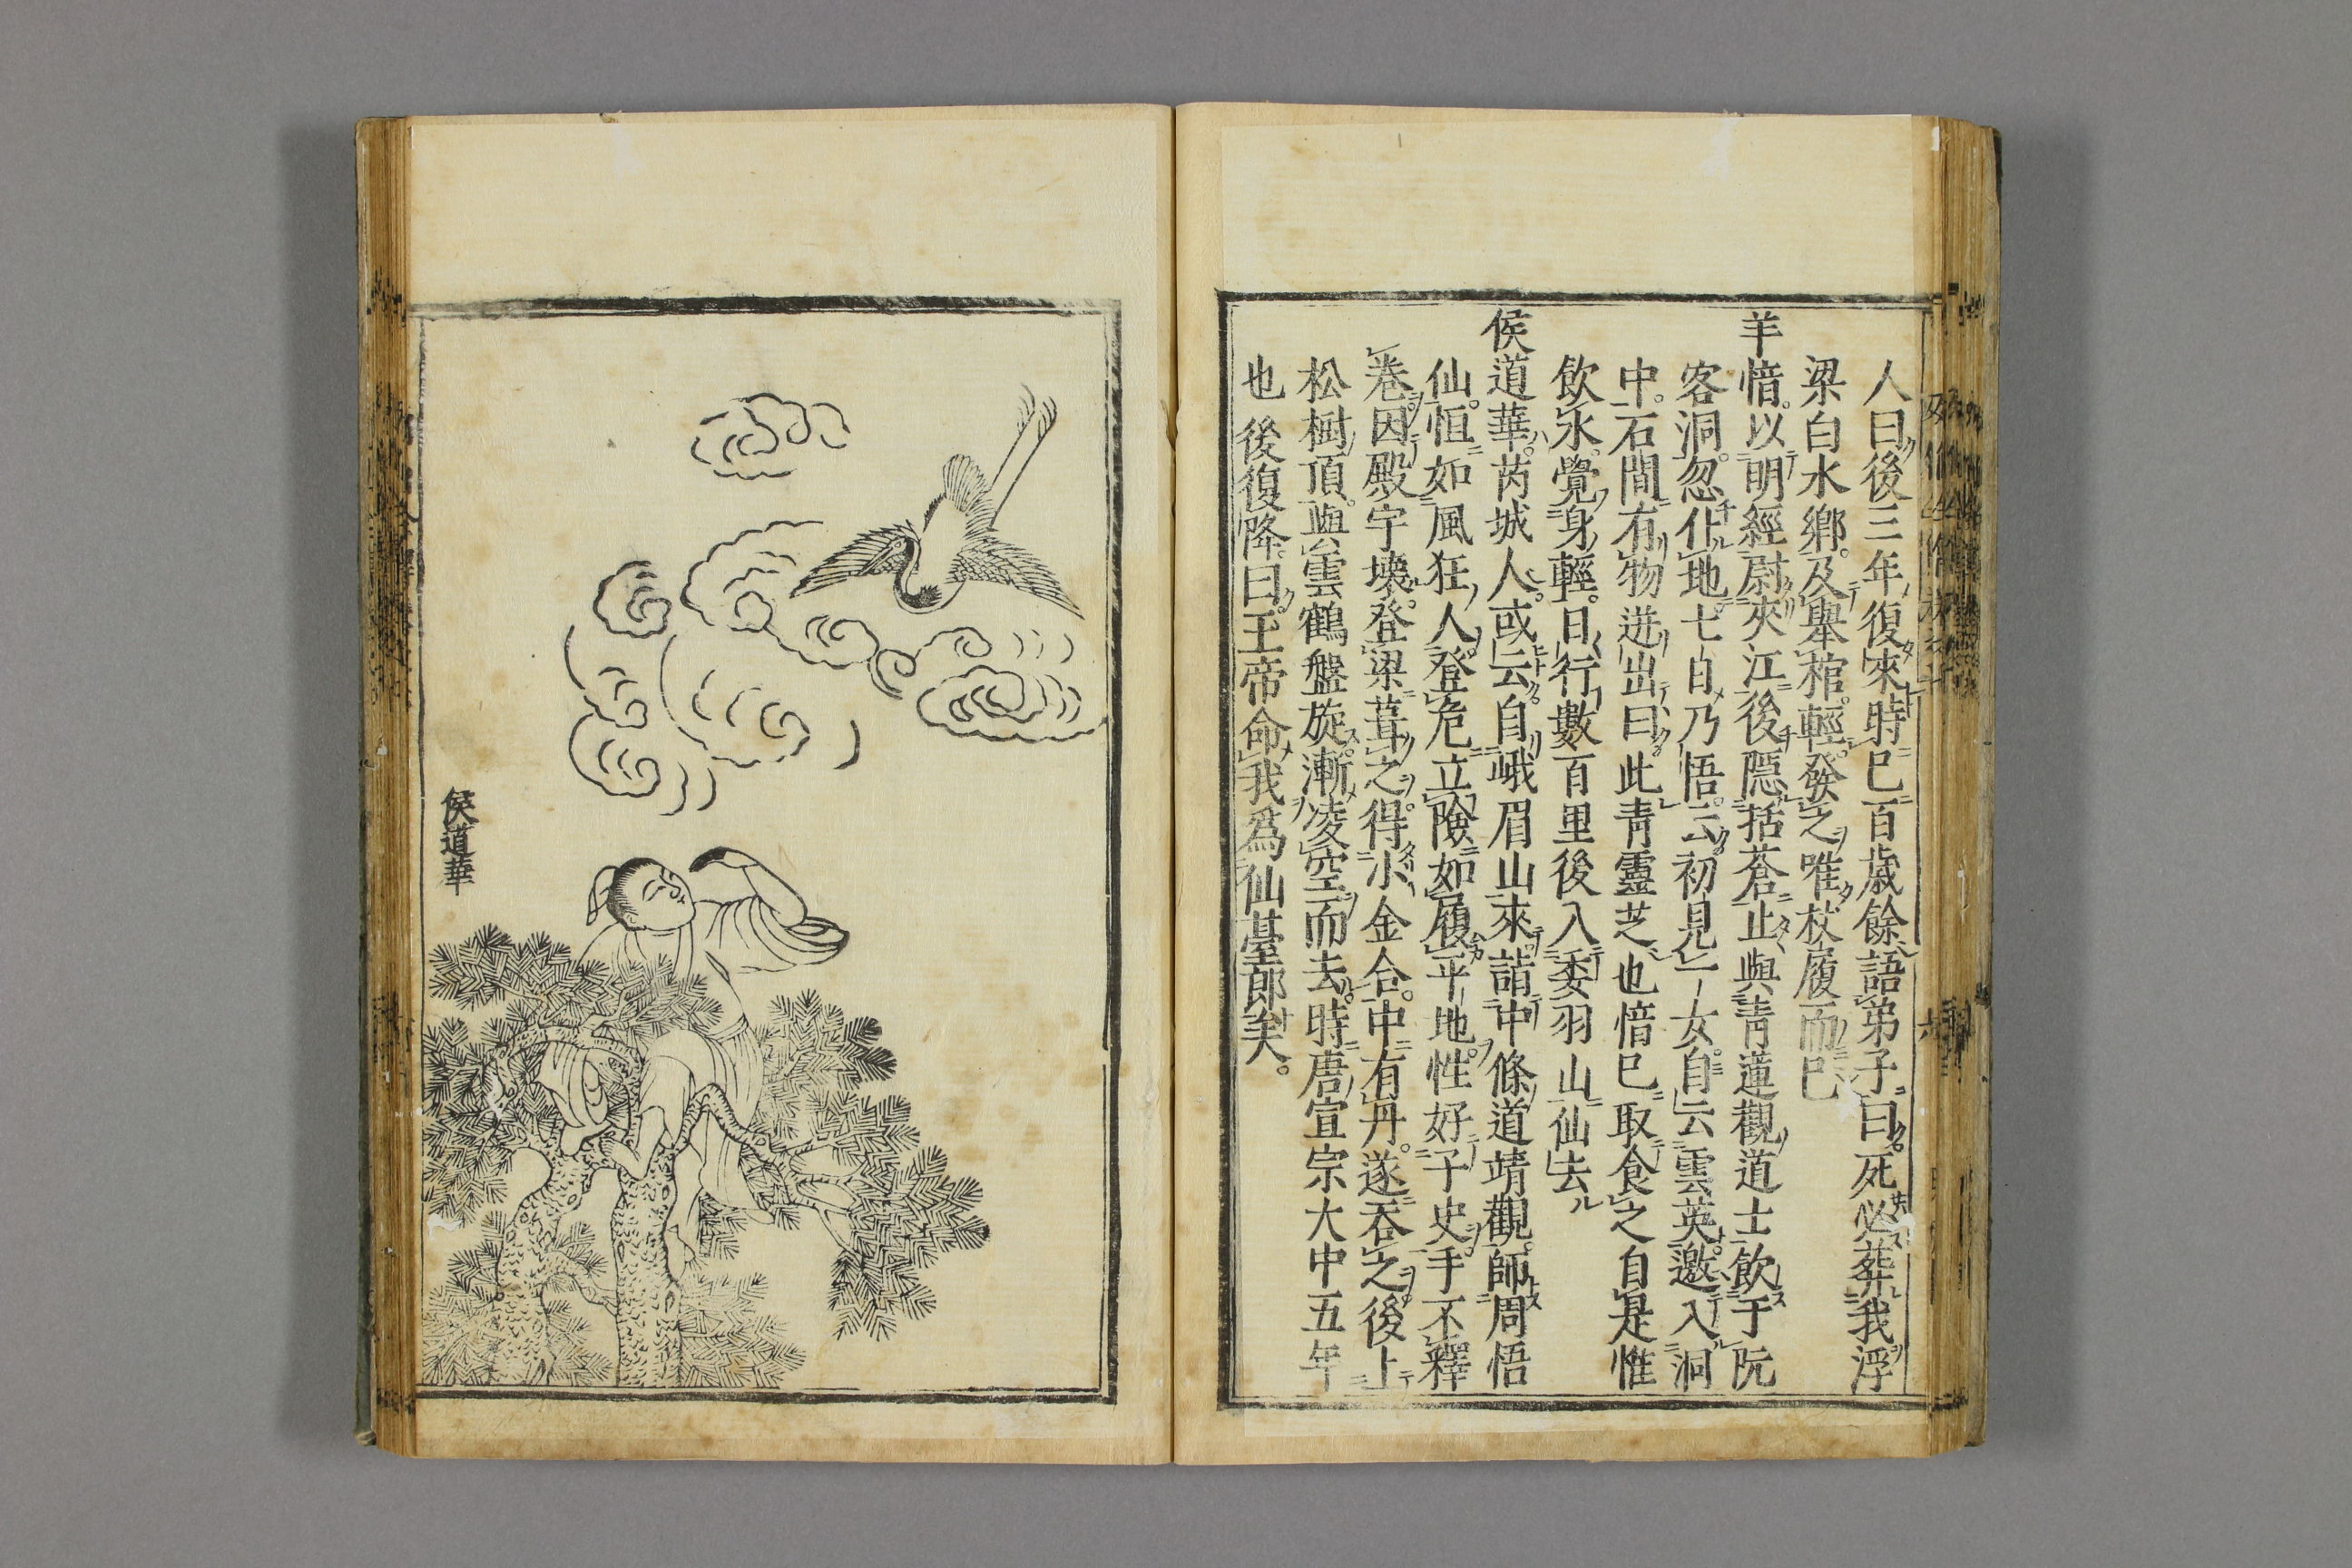 人曰後三年復來時已百歲餘語弟子曰死必葬我浮
梁白水鄉及舉棺輕發之唯杖履而已
羊愔以明經尉夾江後隱括蒼止與青蓮觀道士飲于阮
客洞忽仆地七日乃悟云初見一女自云雲英邀入洞
中石間有物迸出曰此青靈芝也愔已取食之自是惟
飲水覺身輕日行數百里後入委羽山仙去
侯道華芮城人或云自峨眉山來詣中條道靖觀師周悟
仙恒如風狂人登危立險如履平地性好子史手不釋
卷因殿宇壞登梁葺之得小金合中有丹遂吞之後上
松樹頂與雲鶴盤旋漸凌空而去時唐宣宗大中五年
也後復降曰玉帝命我為仙臺郎矣
侯道華